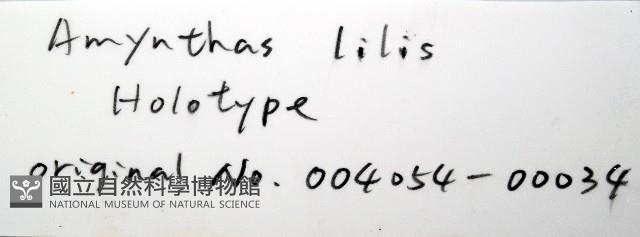 Amynthas lilis
Holotype
original No. 004054-00034
國立自然科學博物館
NATIONAL MUSEUM OF NATURAL SCIENCE